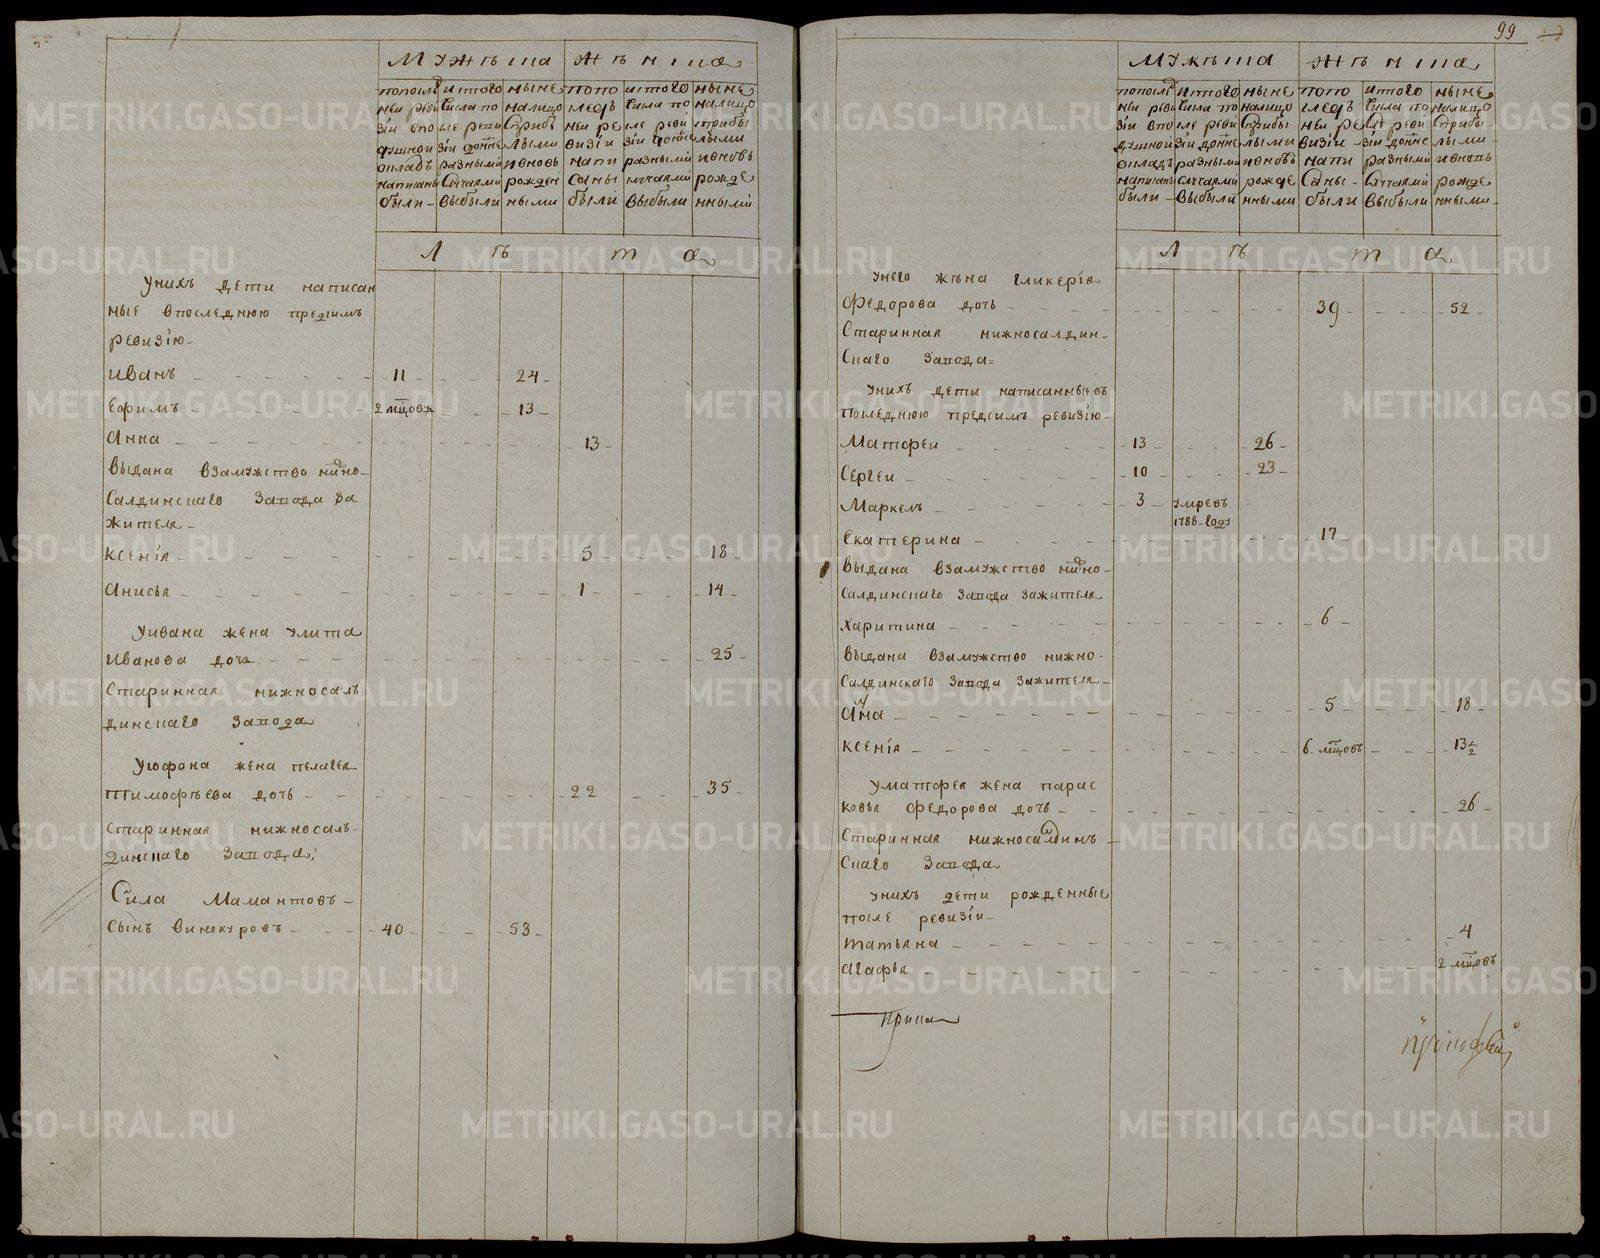 Мужеска
Женска
попослѣд
ней реви
зіи впо
душной
окладъ
написаны
были -
итого
числа по
сле реви
зіи донне
разными
случаями
выбыли
ныне
налицо
с прибы
лыми
ивновь
рожден
ными
попо
следъ
ней ре
визіи
напи
саны
были
итого
числа по
сле реви
зіи донне
разными
случаями
выбыли
ныне
налицо
с прибы
лыми
ивновь
рожде
нными
Л ѣ т а
Унихъ дети написан
ные впоследнюю предсимъ
ревизію -
Иванъ 11 24
Ефимъ 2 мцовъ 13
Анна 13
Выдана взамужство нижно -
Салдинскаго Завода за
жителя -
Ксенія 5 18
Анисья 1 14
Уивана жена улита
Иванова дочь 25
Старинная нижносалъ
динскаго Завода
Угофона жена пелагея
Тимофѣева дочь 22 35
Старинная нижносалъ -
динскаго Завода;
Сила Мамантовъ -
Сынъ Винокуровъ 40 53
99
Мужеска
Женска
попослѣд
ней реви
зіи впо
душной
окладъ
написаны
были -
итого
числа по
сле реви
зіи донне
разными
случаями
выбыли
ныне
налицо
с прибы
лыми
ивновь
рожде
нными
попо
следъ
ней ре
визіи -
напи
саны -
были
итого
числа по
сле реви
зіи донне
разными
случаями
выбыли
ныне
налицо
с прибы -
лыми -
ивновь
рожде
нными -
Л ѣ т а
Унего жена гликерія
Федорова дочь 39 52
Старинная нижносалдин -
Скаго Завода =
Унихъ дети написанные въ
последнюю предсимъ ревизію -
Матфеи 13 26
Сергеи 10 23
Маркелъ 3 умревъ
1786 - году
Екатерина 17
Выдана взамужство нижно -
Салдинскаго Завода Зажителя
Харитина 6
Выдана взамужство нижно -
Салдинскаго Завода Зажителя -
Анна 5 18
Ксенія 6 мцовъ 13 1/2
Уматфея жена парас
ковья Федорова дочь 26
Старинная нижносалдинъ -
Скаго Завода
Унихъ дети рожденные
после ревизіи -
Татьяна 4
Агафья 2 мцовъ
METRIKI.GASO-URAL.RU